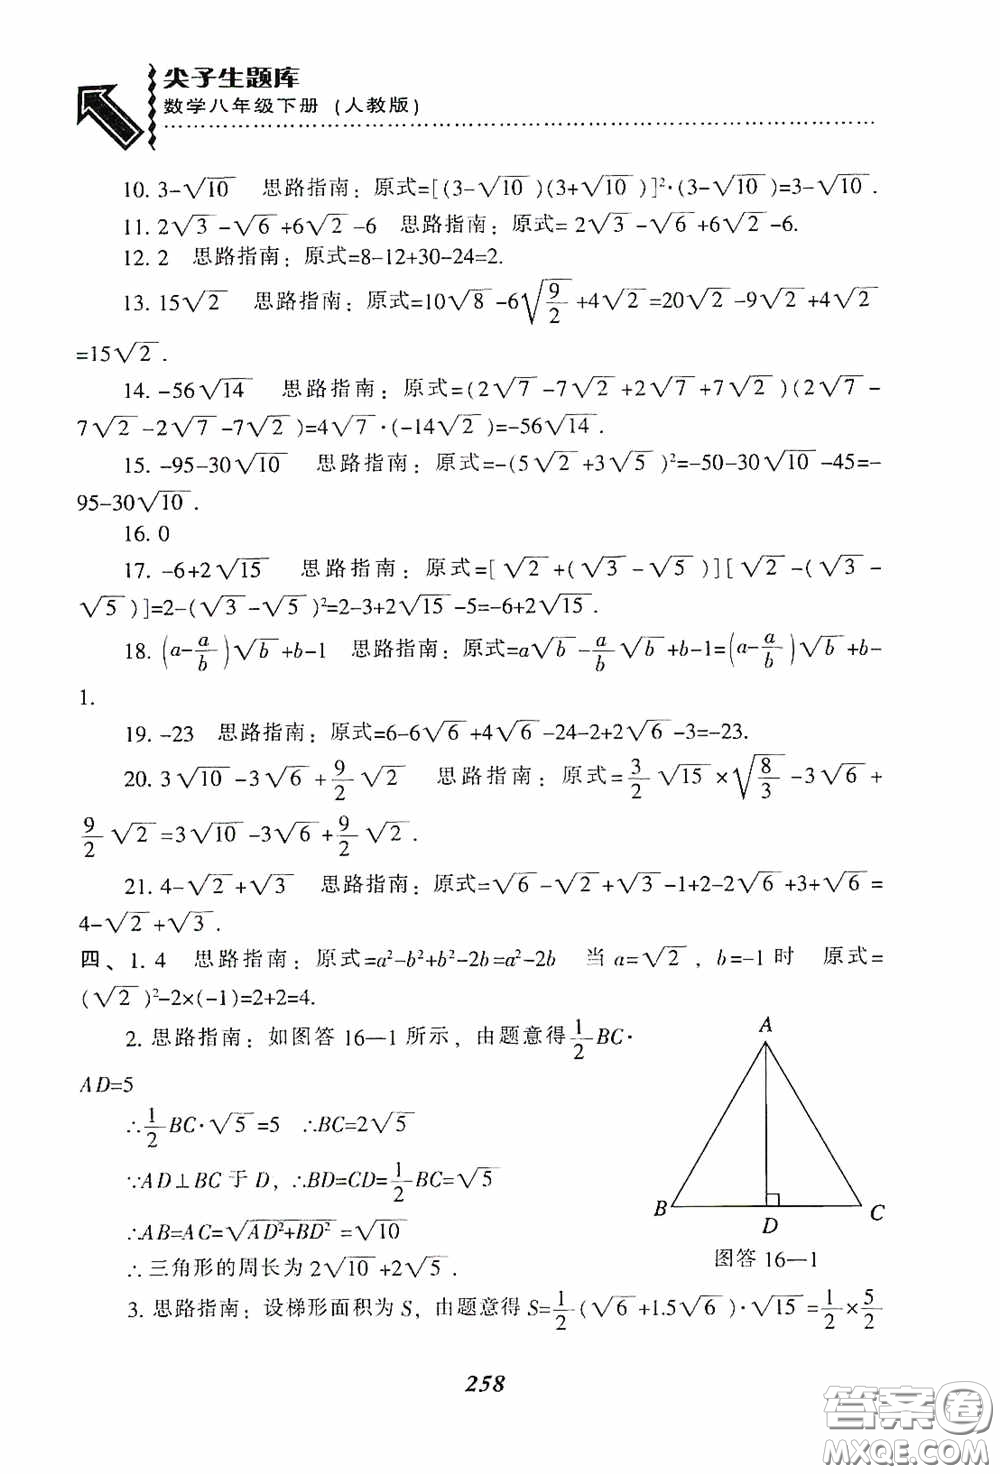 尖子生题库
数学八年级下册（人教版）
10. 3-√10　思路指南：原式=[(3-√10)(3+√10)]²·(3-√10)=3-√10.
11. 2√3-√6+6√2-6　思路指南：原式=2√3-√6+6√2-6.
12. 2　思路指南：原式=8-12+30-24=2.
13. 15√2　思路指南：原式=10√8-6√(9/2)+4√2=20√2-9√2+4√2
=15√2.
14. -56√14　思路指南：原式=(2√7-7√2+2√7+7√2)(2√7-
7√2-2√7-7√2)=4√7·(-14√2)=-56√14.
15. -95-30√10　思路指南：原式=-(5√2+3√5)²=-50-30√10-45=-
95-30√10.
16. 0
17. -6+2√15　思路指南：原式=[√2+(√3-√5)][√2-(√3-
√5)]=2-(√3-√5)²=2-3+2√15-5=-6+2√15.
18. (a-a/b)√b+b-1　思路指南：原式=a√b-a/b√b+b-1=(a-a/b)√b+b-
1.
19. -23　思路指南：原式=6-6√6+4√6-24-2+2√6-3=-23.
20. 3√10-3√6+9/2√2　思路指南：原式=3/2√15×√(8/3)-3√6+
9/2√2=3√10-3√6+9/2√2.
21. 4-√2+√3　思路指南：原式=√6-√2+√3-1+2-2√6+3+√6=
4-√2+√3.
四、1. 4　思路指南：原式=a²-b²+b²-2b=a²-2b　当a=√2，b=-1时　原式=
(√2)²-2×(-1)=2+2=4.
2. 思路指南：如图答16—1所示，由题意得1/2BC·
AD=5
∴1/2BC·√5=5　∴BC=2√5
∵AD⊥BC于D，∴BD=CD=1/2BC=√5
∴AB=AC=√(AD²+BD²)=√10
∴三角形的周长为2√10+2√5.
A
B
D
C
图答16—1
3. 思路指南：设梯形面积为S，由题意得S=1/2(√6+1.5√6)·√15=1/2×5/2
258
答案卷
MXQE.COM